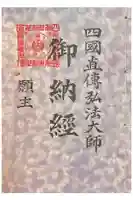 四國直傳弘法大師
御納經
願主